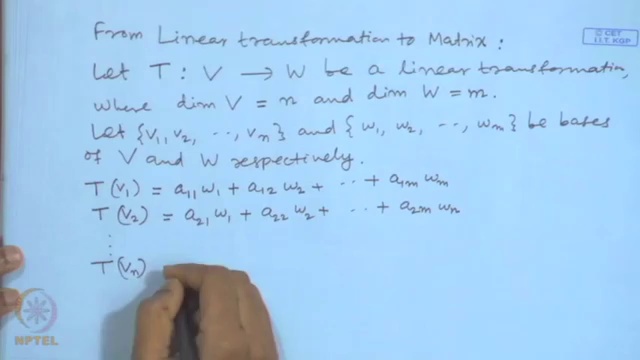 © CET
I.I.T. KGP
From Linear transformation to Matrix :
Let T : V → W be a linear transformation,
where dim V = n and dim W = m.
Let {v₁, v₂, ··, vₙ} and {w₁, w₂, ··, wₘ} be bases
of V and W respectively.
T(v₁) = a₁₁w₁ + a₁₂w₂ + ·· + a₁ₘwₘ
T(v₂) = a₂₁w₁ + a₂₂w₂ + ·· + a₂ₘwₙ
⋮
T(vₙ)
NPTEL